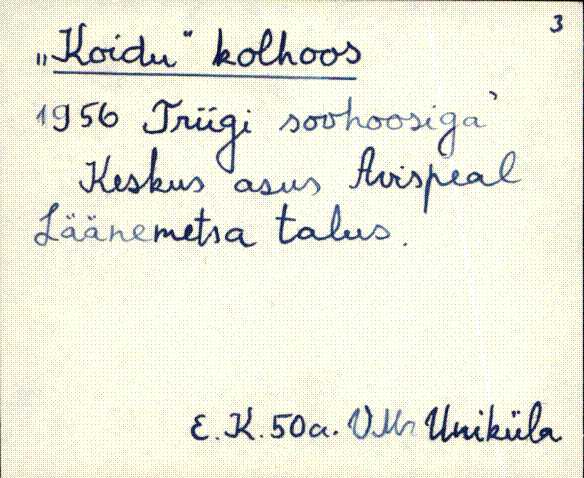 3
„Koidu" kolhoos
1956 Triigi sovhoosiga'
Keskus asus Avispeal
Läänemetsa talus.
E.K. 50a. VMr Uniküla